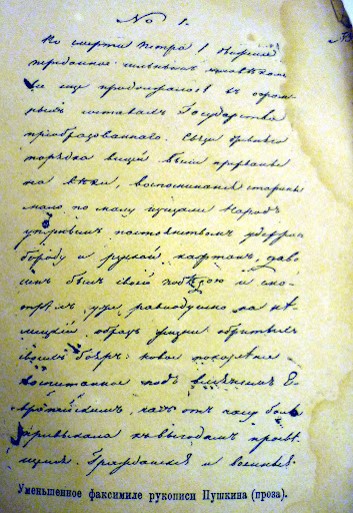 No 1.
По смерти Петра I движение
переданное сильным человеком
все еще продолжалось в огром
ныхъ составахъ Государства
преобразованнаго. Связи древняго
порядка вещей были прерваны
на вѣки, воспоминанія старины
мало по малу изчезали. Народ
упорнымъ постоянствомъ удержав
бороду и русской кафтанъ, дово
ленъ былъ своей победою и смо
трѣлъ уже равнодушно на нѣ
мецкій образъ жизни обритыхъ
своихъ бояръ. Новое поколѣніе
воспитанное подъ вліяніемъ Е
вропейскимъ, часъ отъ часу болѣе
привыкало къ выгодамъ просвѣ
щенія. Гражданскіе и военные
Уменьшенное факсимиле рукописи Пушкина (проза).